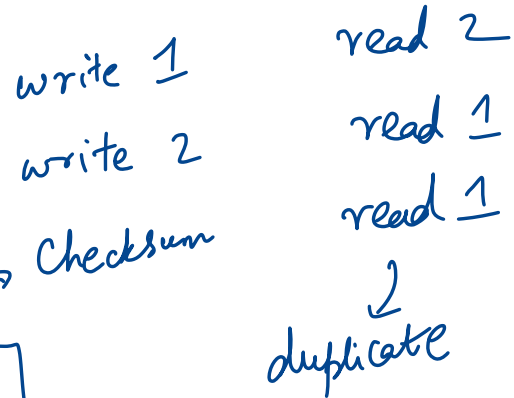 write 1
write 2
Checksum
read 2
read 1
read 1
duplicate